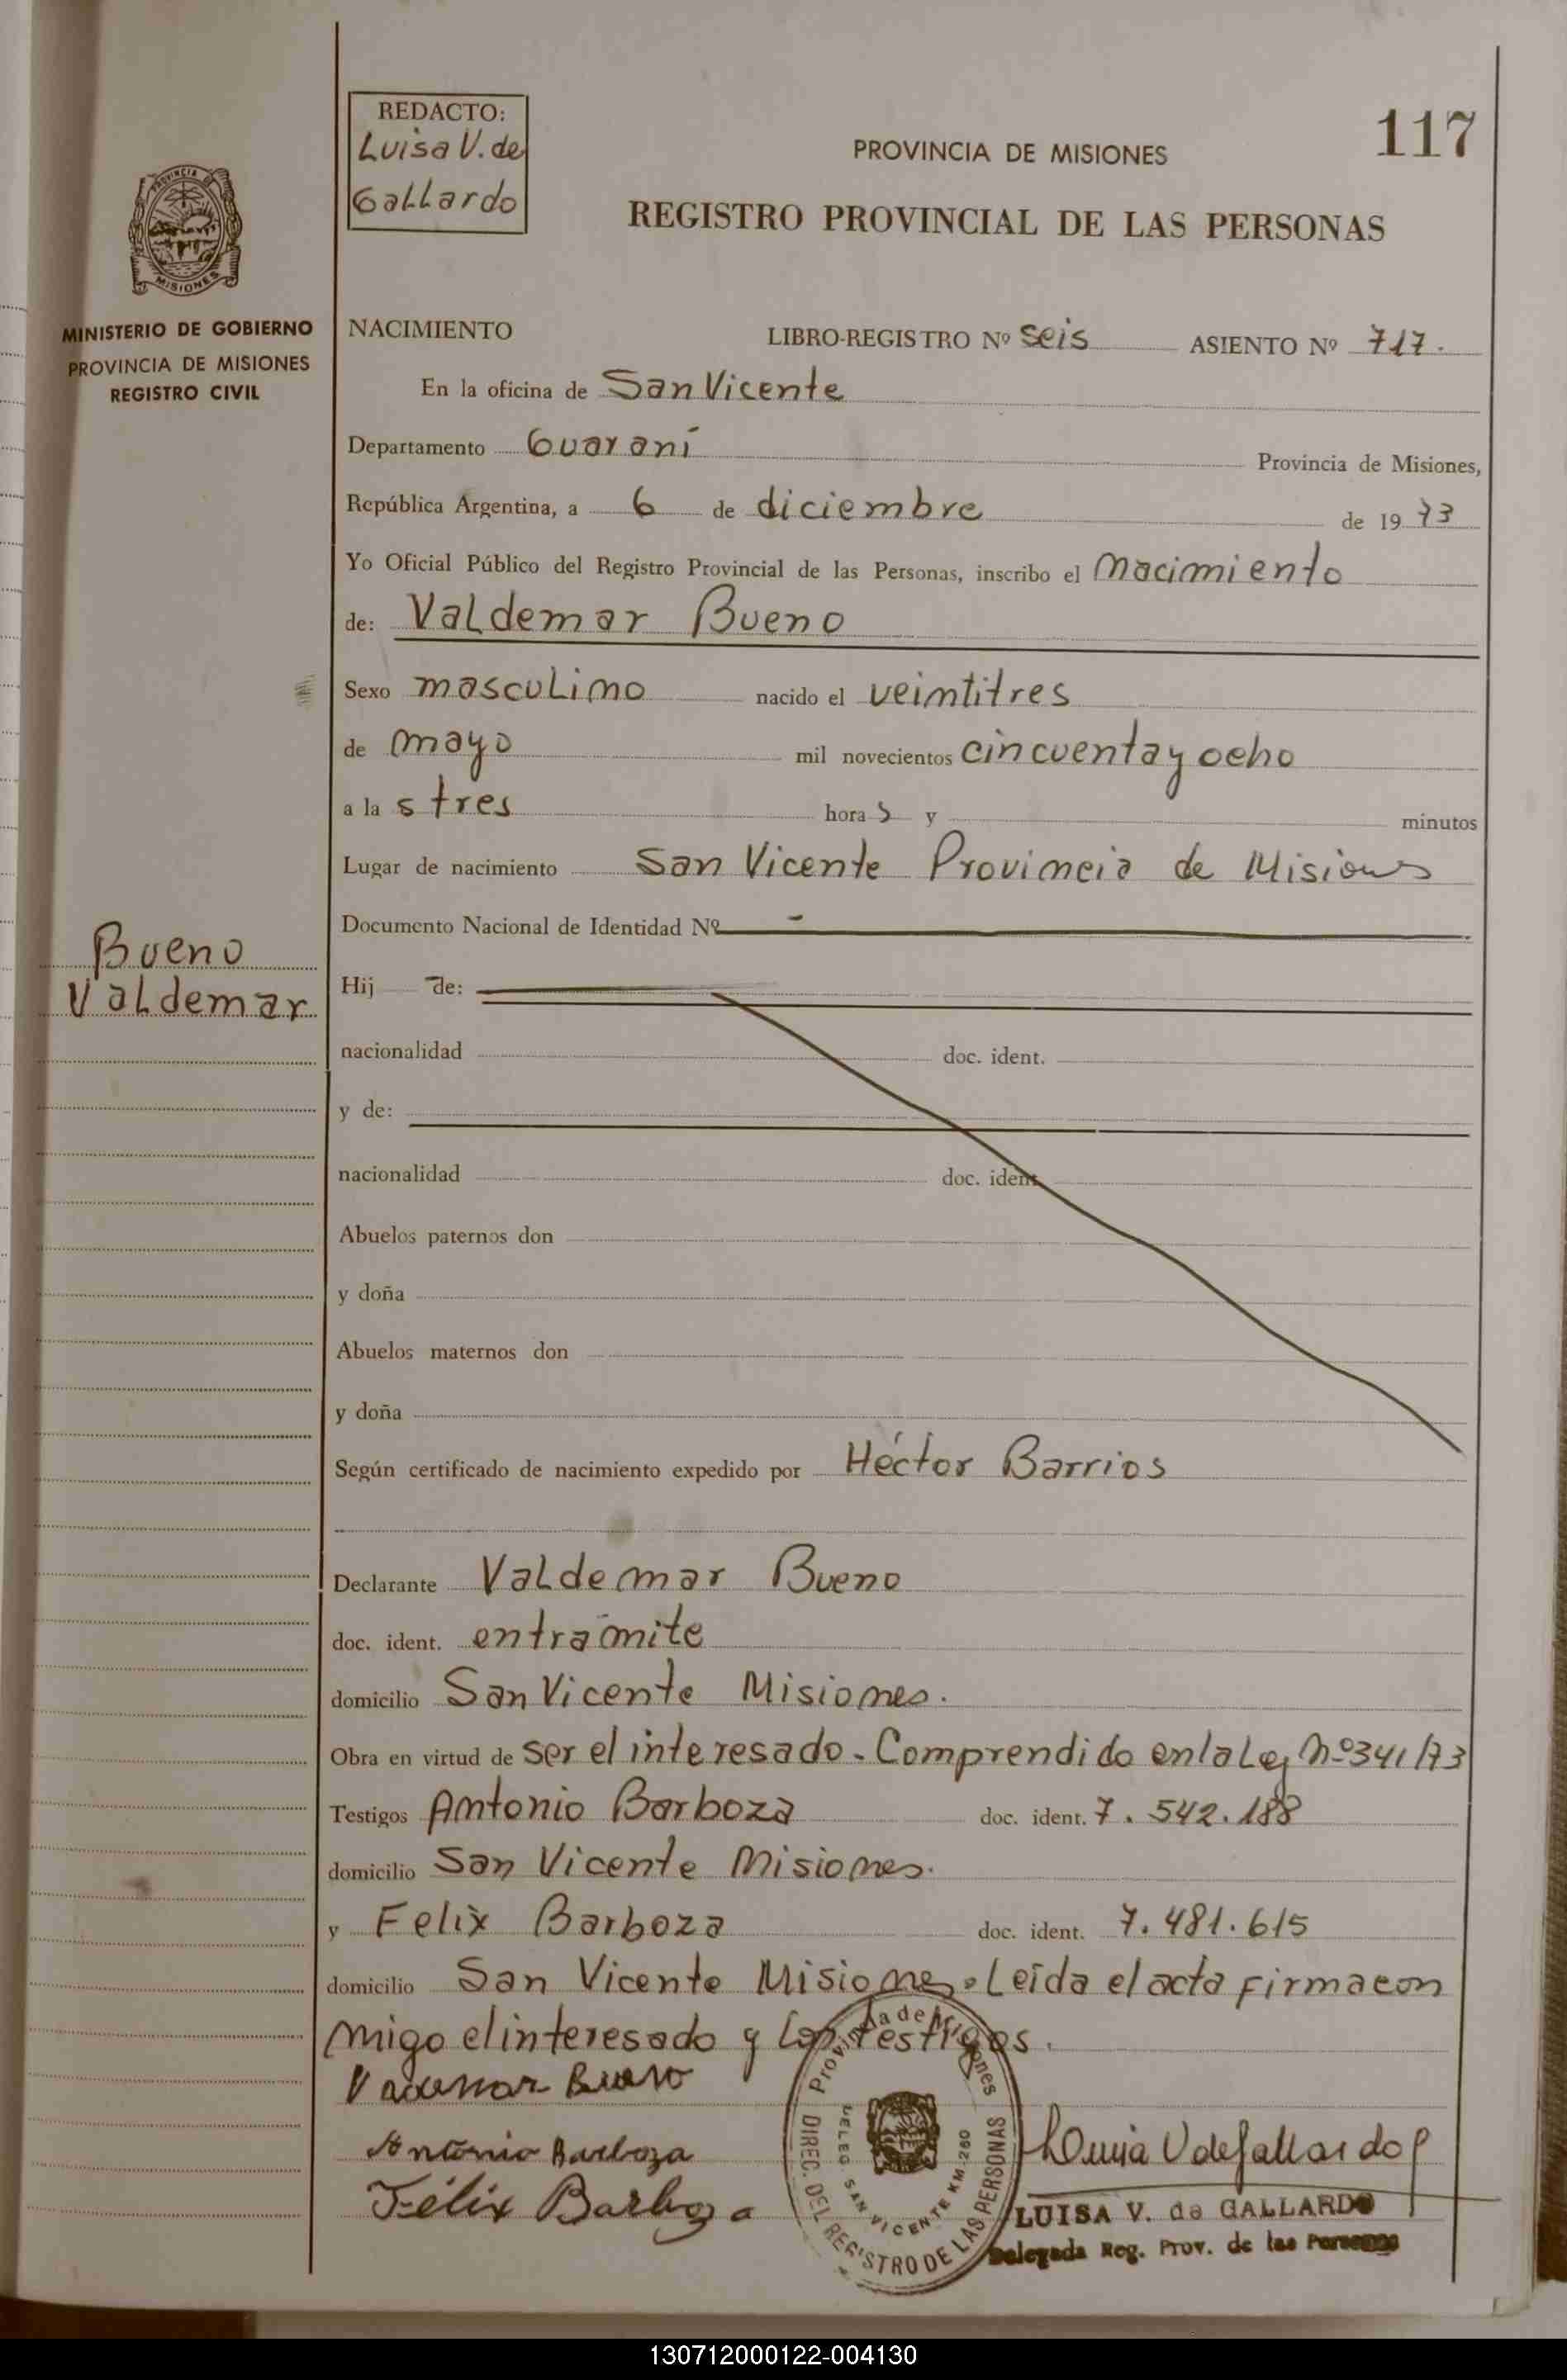 REDACTO:
Luisa V. de
Gallardo
117
PROVINCIA DE MISIONES
REGISTRO PROVINCIAL DE LAS PERSONAS
PROVINCIA DE
MISIONES
MINISTERIO DE GOBIERNO
PROVINCIA DE MISIONES
REGISTRO CIVIL
NACIMIENTO LIBRO-REGISTRO Nº seis ASIENTO Nº 717.
En la oficina de San Vicente
Departamento Guaraní Provincia de Misiones,
República Argentina, a 6 de diciembre de 19 73
Yo Oficial Público del Registro Provincial de las Personas, inscribo el nacimiento
de: Valdemar Bueno
Sexo masculino nacido el veintitres
de mayo mil novecientos cincuenta y ocho
a la s tres hora s y minutos
Lugar de nacimiento San Vicente Provincia de Misiones
Documento Nacional de Identidad Nº -
Bueno
Valdemar
Hij de:
nacionalidad doc. ident.
y de:
nacionalidad doc. ident.
Abuelos paternos don
y doña
Abuelos maternos don
y doña
Según certificado de nacimiento expedido por Héctor Barrios
Declarante Valdemar Bueno
doc. ident. en trámite
domicilio San Vicente Misiones.
Obra en virtud de ser el interesado. Comprendido en la Ley Nº 341/73
Testigos Antonio Barboza doc. ident. 7.542.188
domicilio San Vicente Misiones.
y Felix Barboza doc. ident. 7.481.615
domicilio San Vicente Misiones. Leída el acta firma con
migo el interesado y los testigos.
Valdemar Bueno
Antonio Barboza
Félix Barboza
Provincia de Misiones
DIREC. DEL REGISTRO DE LAS PERSONAS
DELEG. SAN VICENTE KM. 260
Luisa V de Gallardo
LUISA V. de GALLARDO
Delegada Reg. Prov. de las Personas
130712000122-004130